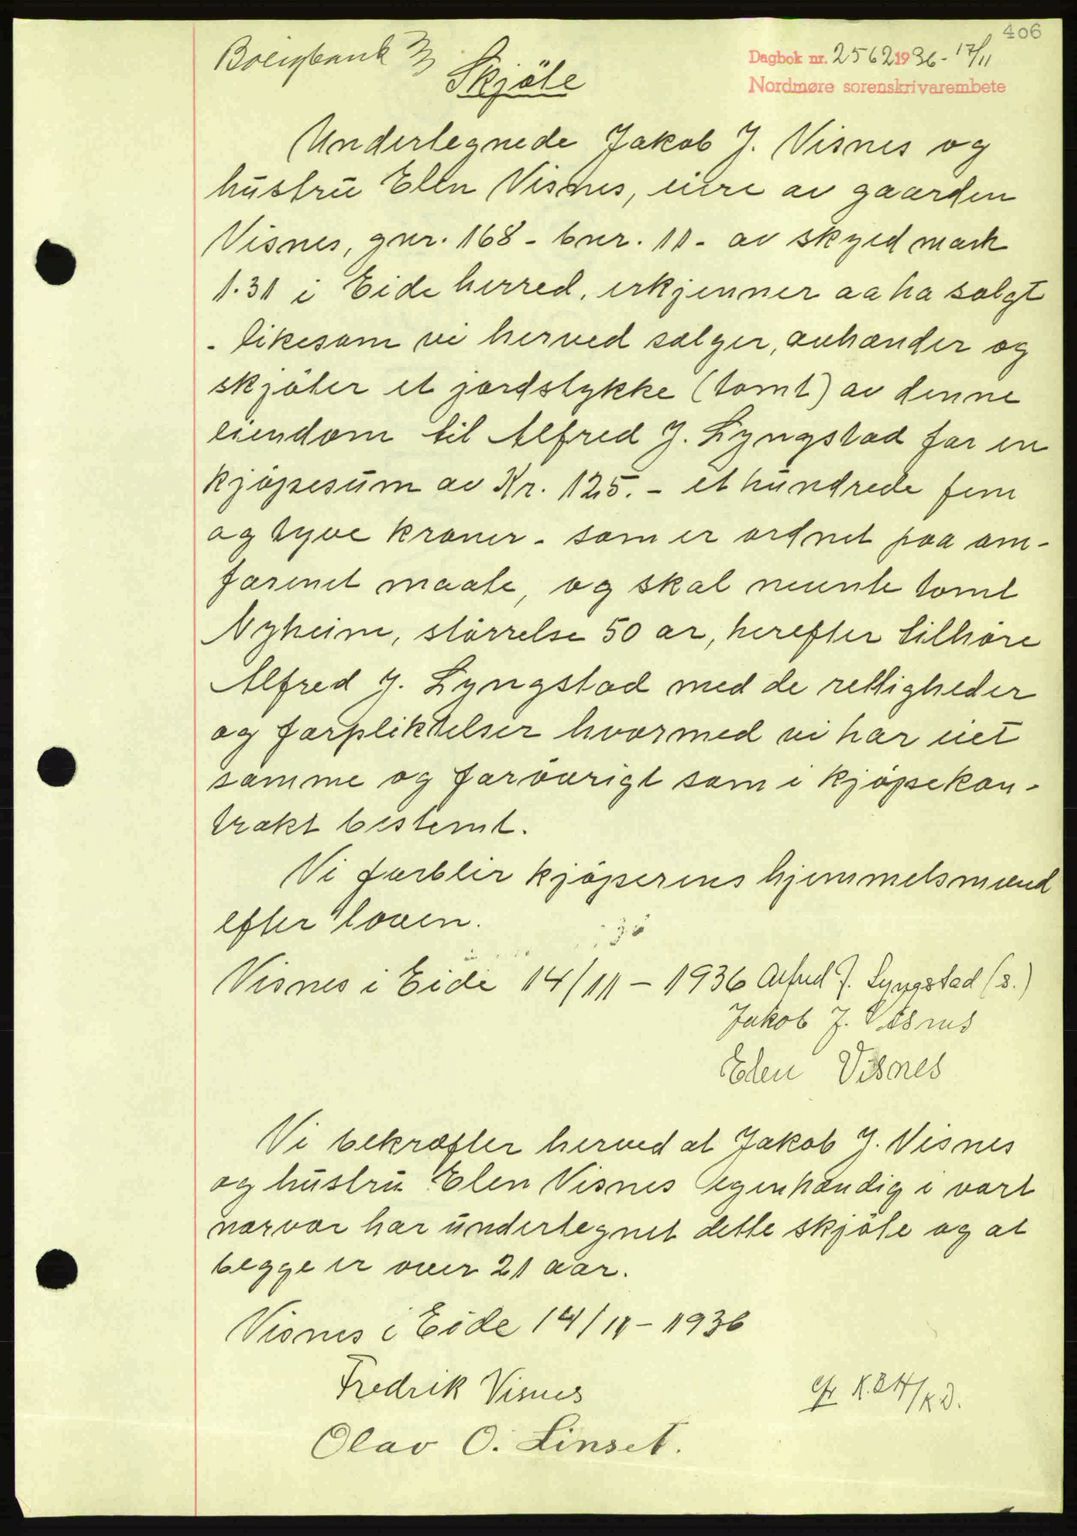 406
Dagbok nr. 2562 1936 - 17/11
Nordmøre sorenskrivarembete
Skjöte
Undertegnede Jakob J. Visnes og
hustru Elen Visnes, eiere av gaarden
Visnes, gnr. 168 - bnr. 11 - av skyld mark
1.31 i Eide herred, erkjenner aa ha solgt
- likesom vi herved sælger, avhænder og
skjöter et jordstykke (tomt) av denne
eiendom til Alfred J. Lyngstad for en
kjöpesum av Kr. 125.- et hundrede fem
og tyve kroner - som er ordnet paa om-
forenet maate, og skal nevnte tomt
Nyheim, störrelse 50 ar, herefter tilhöre
Alfred J. Lyngstad med de rettigheder
og forpliktelser hvormed vi har eiet
samme og forövrigt som i kjöpekon-
trakt bestemt.
Vi forblir kjöperens hjemmelsmænd
efter loven.
Visnes i Eide 14/11 - 1936 Alfred J. Lyngstad (s.)
Jakob J. Visnes
Elen Visnes
Vi bekræfter herved at Jakob J. Visnes
og hustru Elen Visnes egenhændig i vort
nærvær har undertegnet dette skjöte og at
begge er over 21 aar.
Visnes i Eide 14/11 - 1936
Fredrik Visnes
Olav O. Linset.